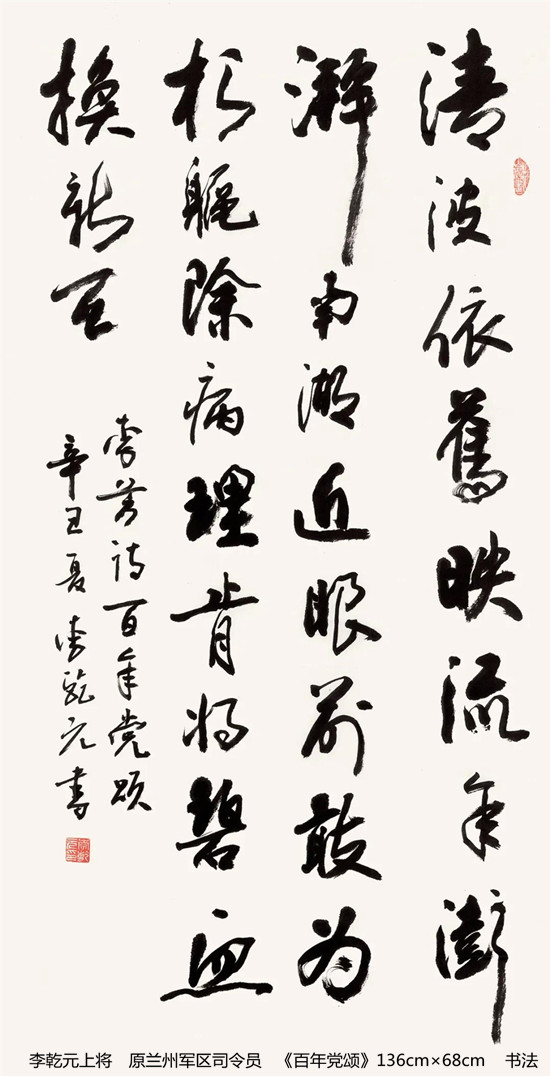 清波依舊映流年澎
湃南湖近眼前敢为
朽軀除病理肯将碧血
换新天
李诗百年党颂
辛丑夏李乾元书
李乾元上将 原兰州军区司令员 《百年党颂》136cm×68cm 书法